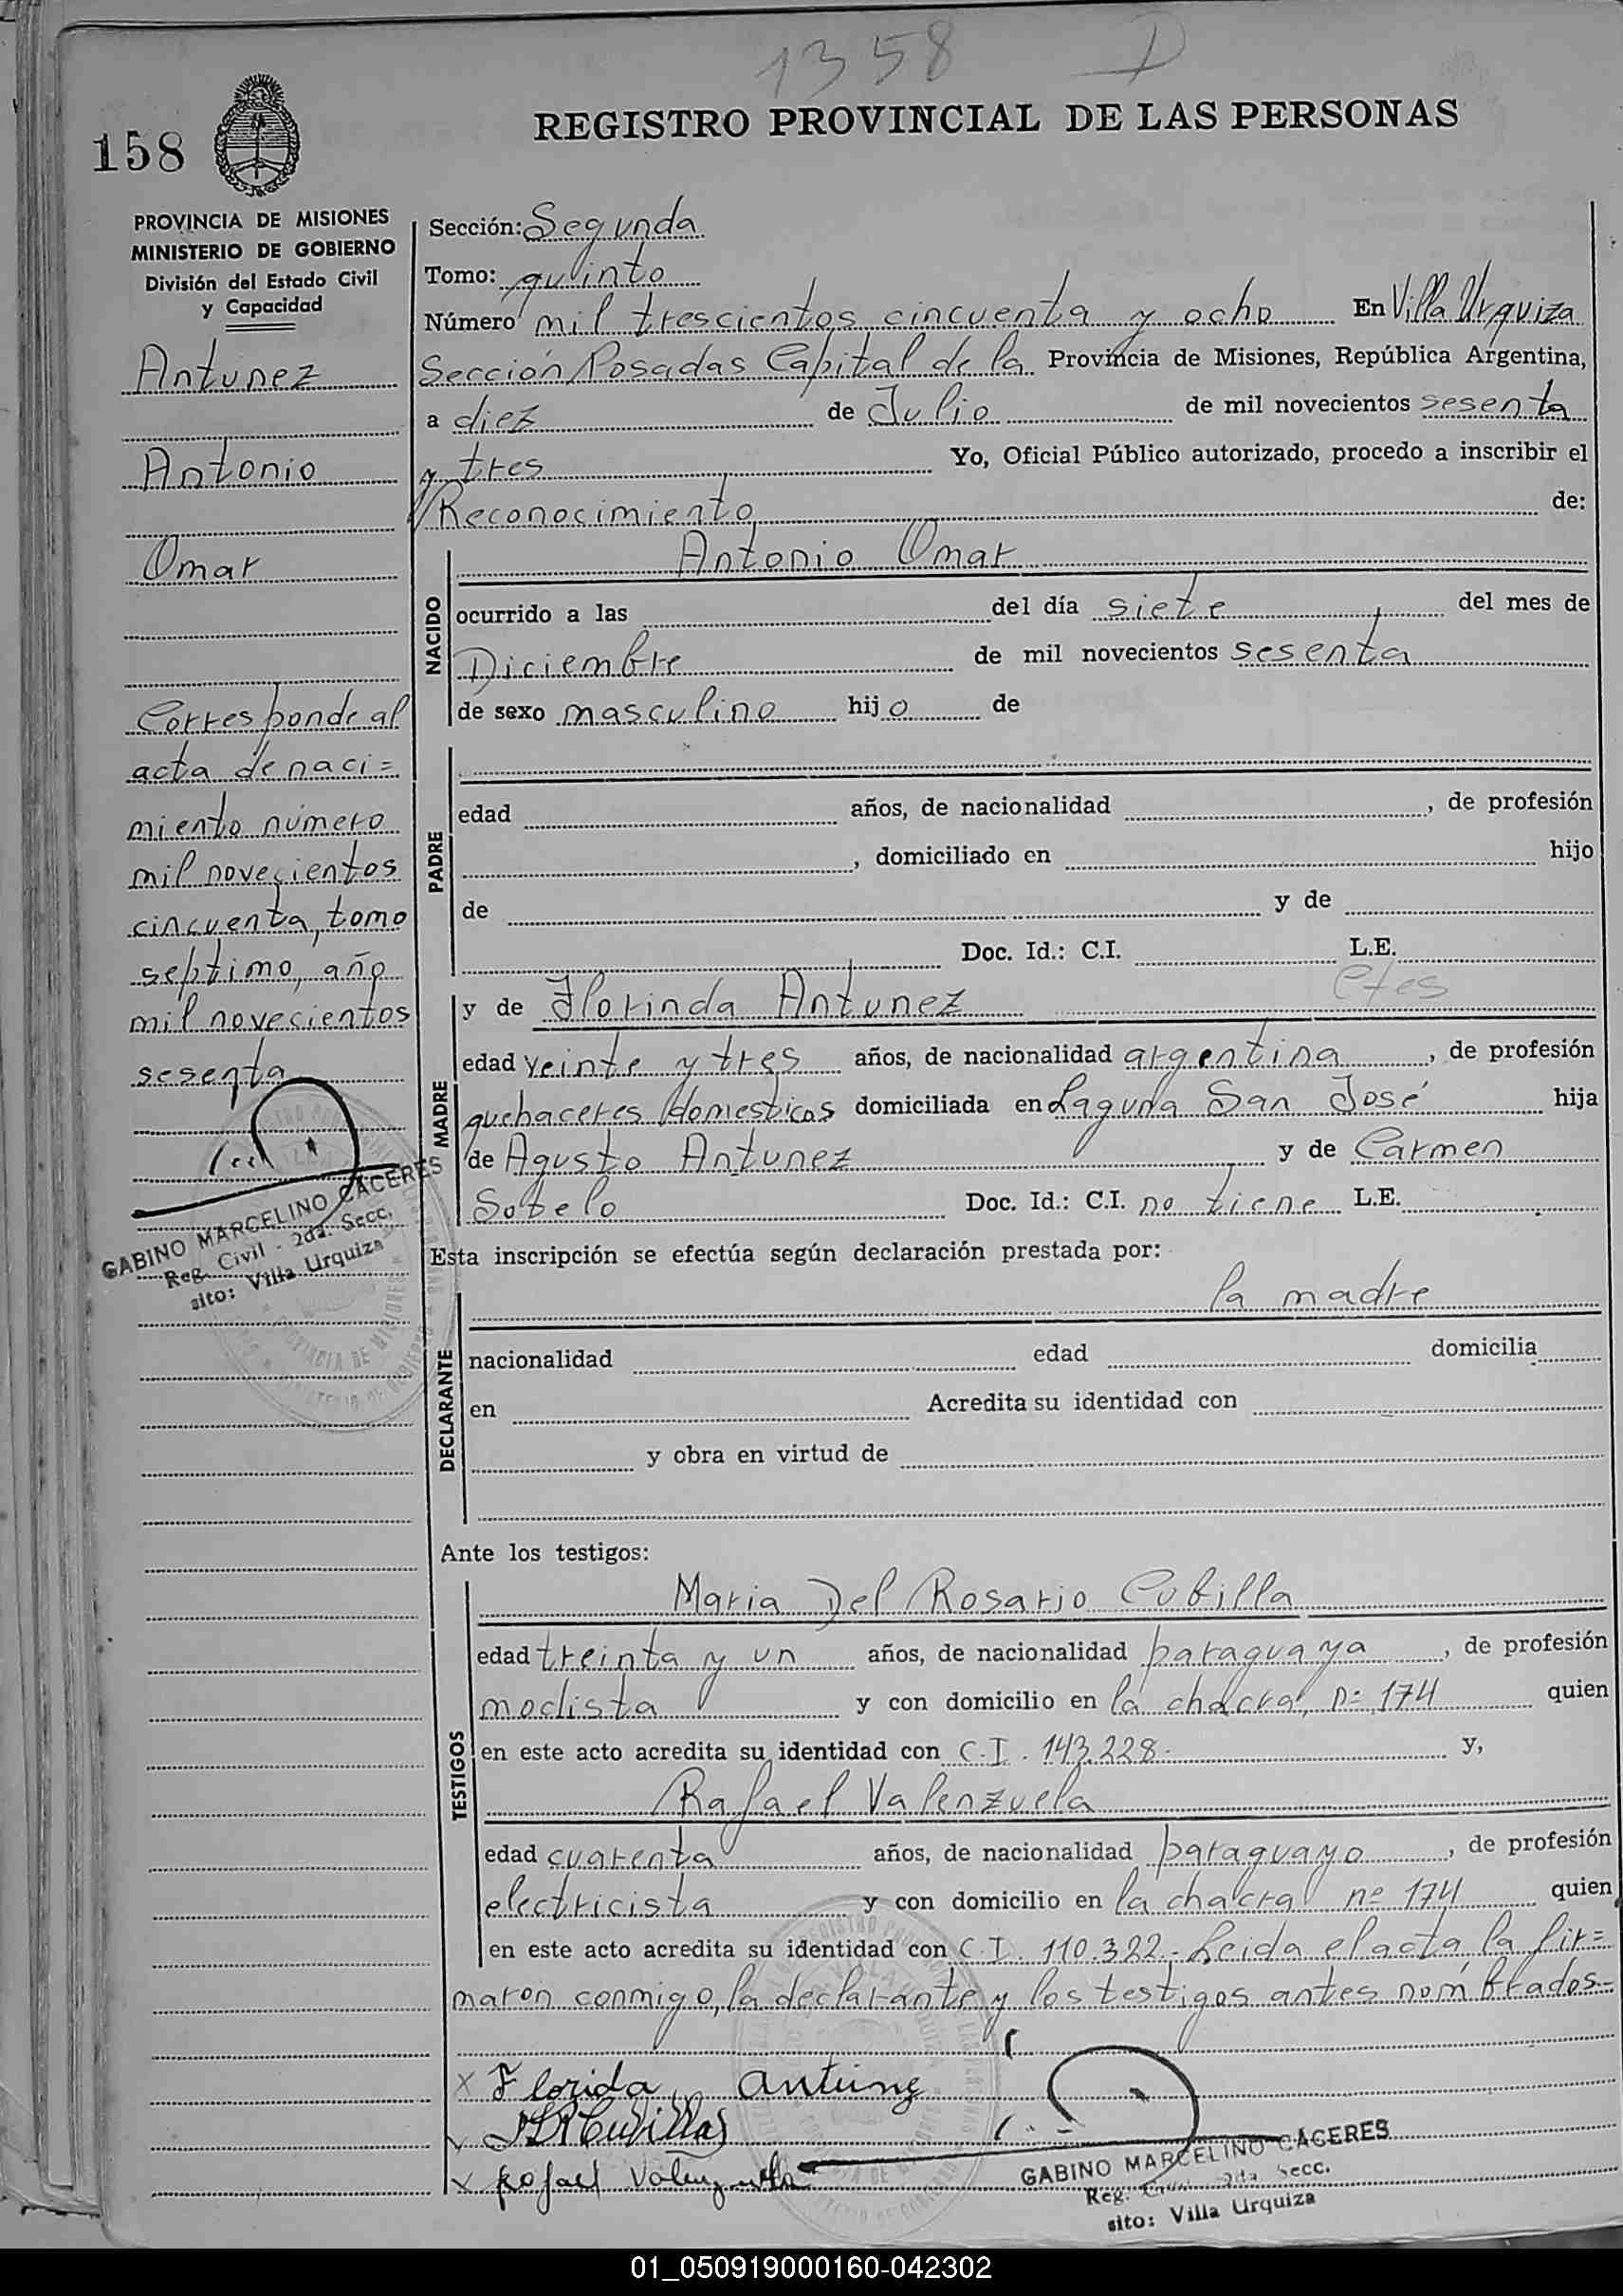 1358 D
158
REGISTRO PROVINCIAL DE LAS PERSONAS
PROVINCIA DE MISIONES
MINISTERIO DE GOBIERNO
División del Estado Civil
y Capacidad
Antunez
Antonio
Omar
Corresponde al
acta de naci=
miento número
mil novecientos
cincuenta, tomo
septimo, año
mil novecientos
sesenta
GABINO MARCELINO CACERES
Reg. Civil - 2da. Secc.
sito: Villa Urquiza
Sección: Segunda
Tomo: quinto
Número mil trescientos cincuenta y ocho En Villa Urquiza
Sección Posadas Capital de la Provincia de Misiones, República Argentina,
a diez de Julio de mil novecientos sesenta
y tres Yo, Oficial Público autorizado, procedo a inscribir el
Reconocimiento de:
NACIDO
Antonio Omar
ocurrido a las del día siete del mes de
Diciembre de mil novecientos sesenta
de sexo masculino hijo de
PADRE
edad años, de nacionalidad , de profesión
, domiciliado en hijo
de y de
Doc. Id.: C.I. L.E.
MADRE
y de Florinda Antunez Ctes
edad veinte y tres años, de nacionalidad argentina , de profesión
quehaceres domesticos domiciliada en Laguna San José hija
de Agusto Antunez y de Carmen
Sotelo Doc. Id.: C.I. no tiene L.E.
Esta inscripción se efectúa según declaración prestada por:
DECLARANTE
la madre
nacionalidad edad domicilia
en Acredita su identidad con
y obra en virtud de
Ante los testigos:
TESTIGOS
Maria Del Rosario Cubilla
edad treinta y un años, de nacionalidad paraguaya , de profesión
modista y con domicilio en la chacra nº 174 quien
en este acto acredita su identidad con C.I. 143.228. y,
Rafael Valenzuela
edad cuarenta años, de nacionalidad paraguayo , de profesión
electricista y con domicilio en la chacra nº 174 quien
en este acto acredita su identidad con C.I. 110.322.- Leida el acta, la fir=
maron conmigo, la declarante y los testigos antes nombrados.-
x Florida Antung
Cubillas
x Rofael Valenzuela
GABINO MARCELINO CACERES
Reg. Civil 2da Secc.
sito: Villa Urquiza
01_050919000160-042302